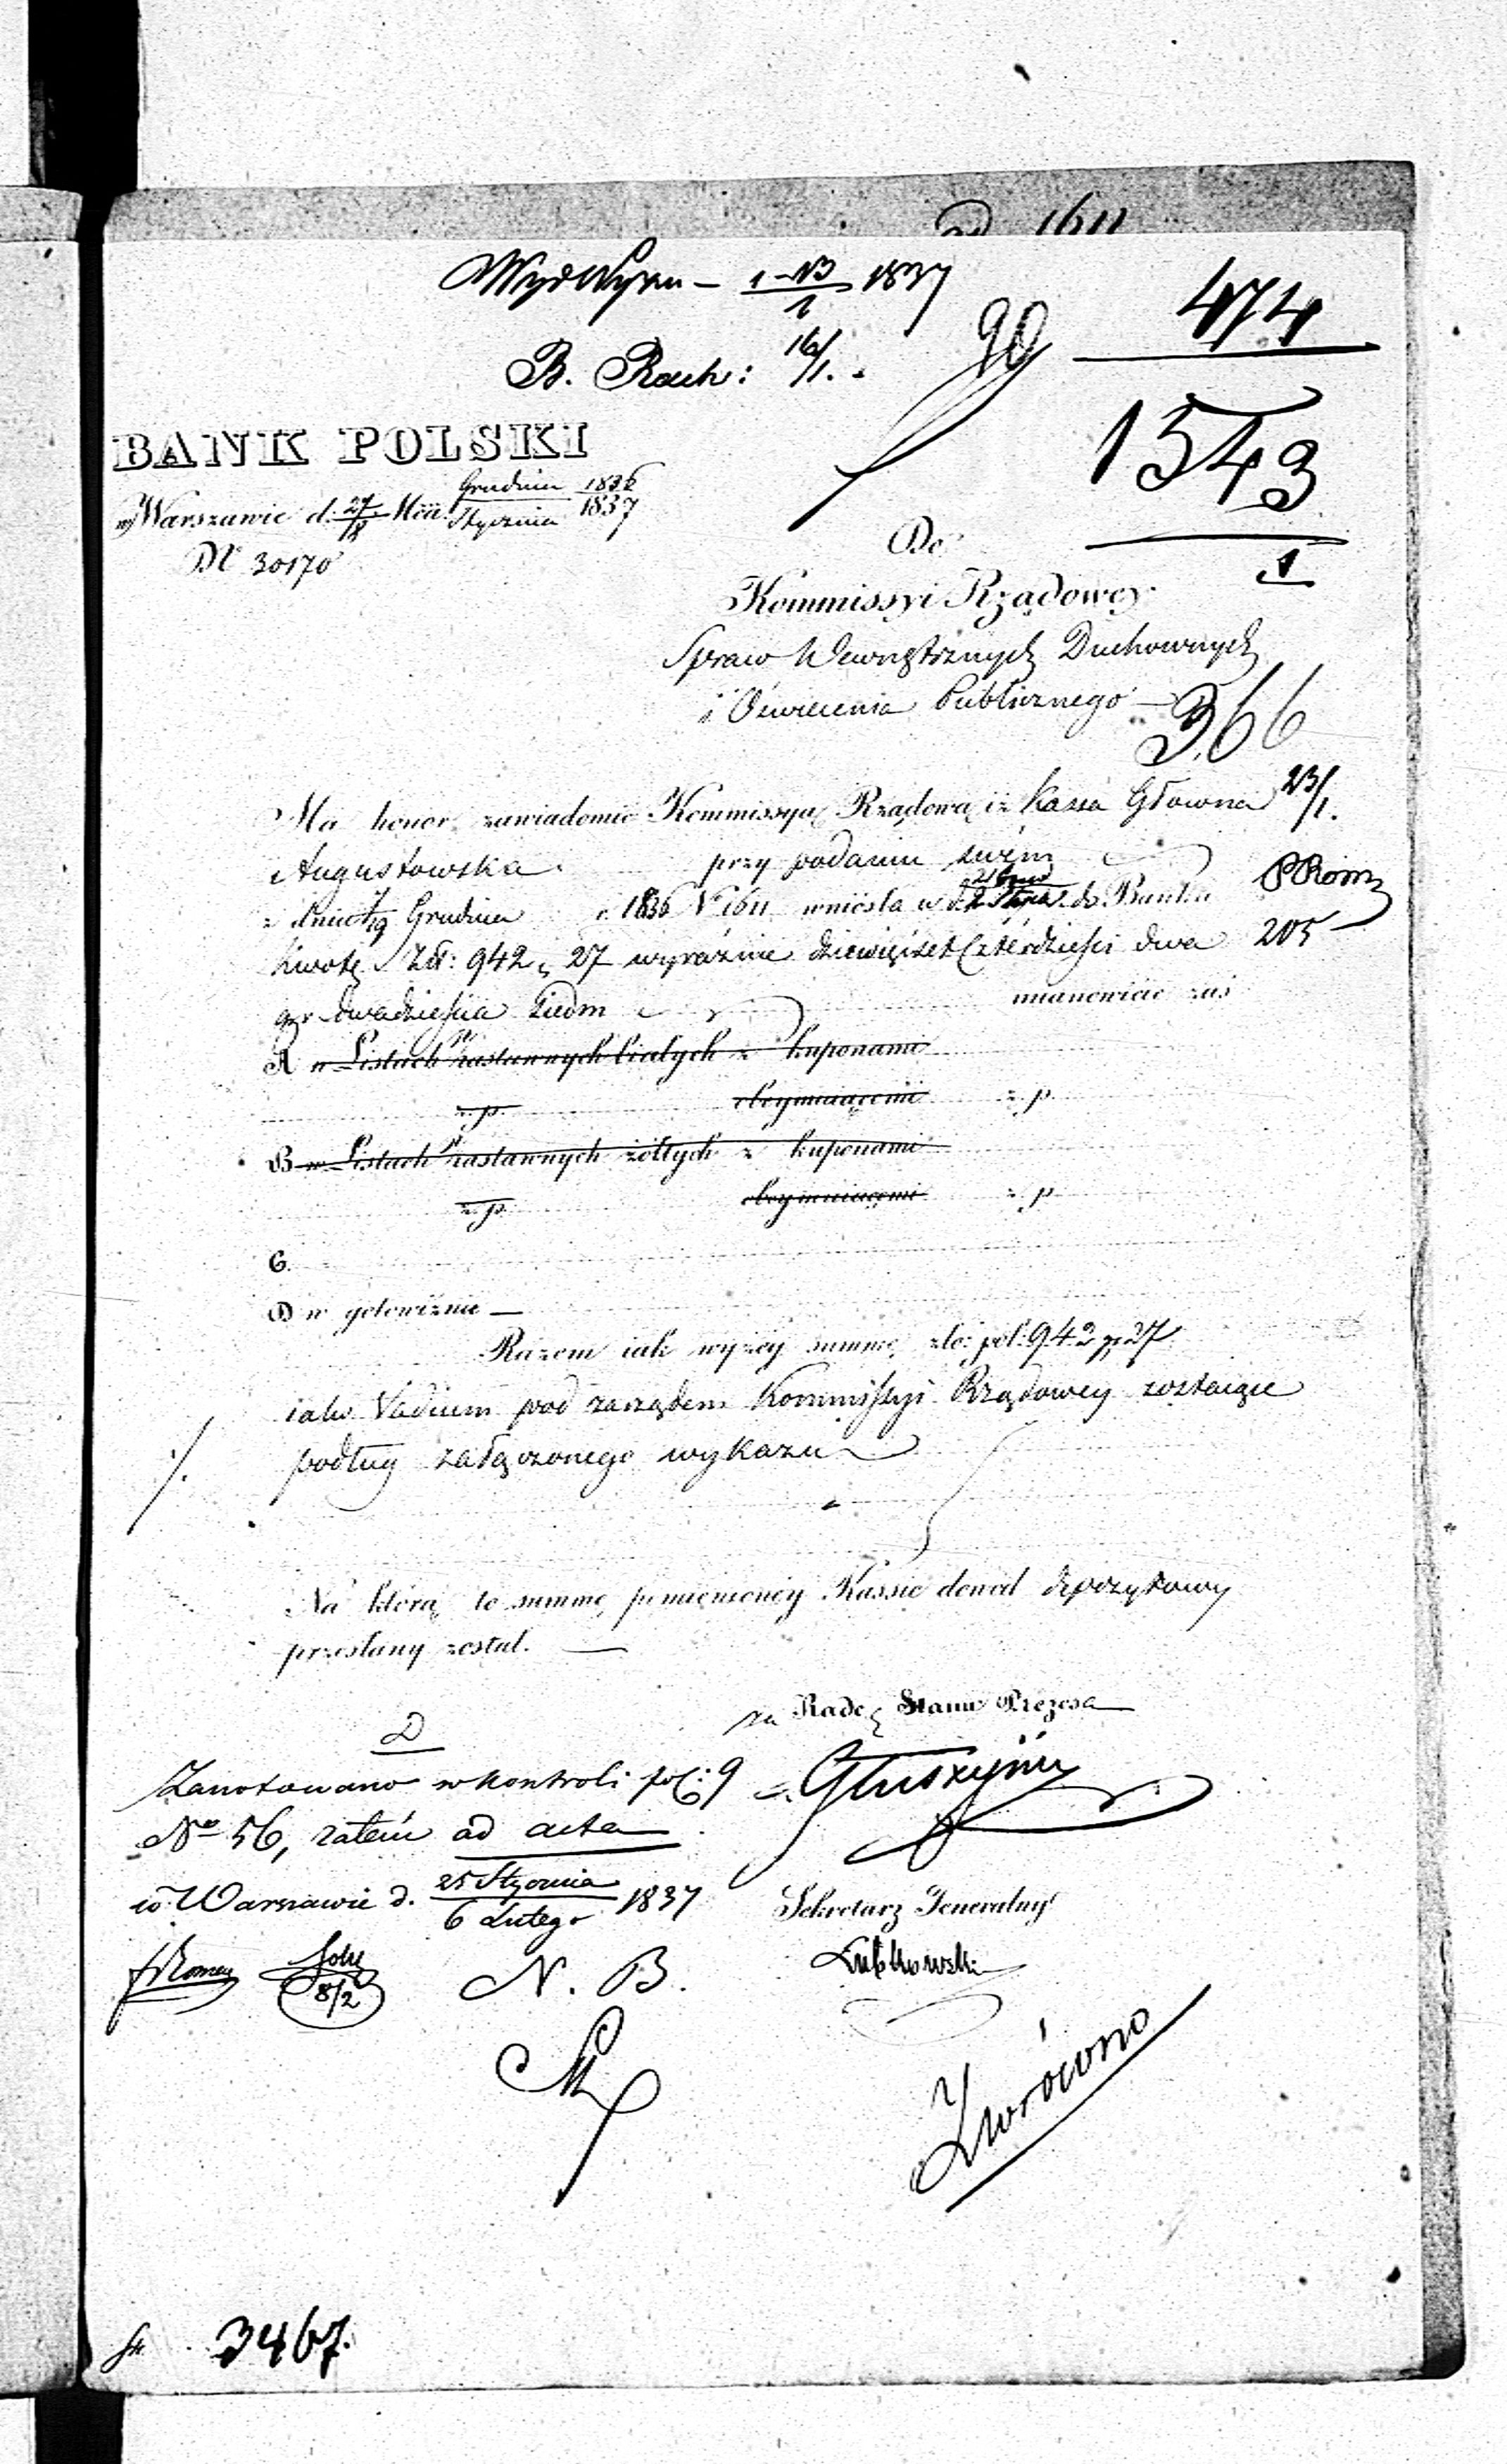 ad 1611
1–13/1 1837
B. Rach: 16/1.
474
1543
1
BANK POLSKI
w Warszawie d. 27/8 Mca Grudnia 1836 / Stycznia 1837
Nr 30170
Do
Kommissyi Rządowey
Spraw Wewnętrznych Duchownych
i Oświecenia Publicznego —
366
Ma honor zawiadomić Kommissyą Rządową iż Kassa Głowna
23/1.
Augustowska przy podaniu swém
z dnia 7/19 Grudnia r. 1836 N 1611 wniosła w d. 21 Grud / 2 Stycz. do Banku
205
kwotę Zł: 942 g 27 wyraźnie dziewięćset Czterdzieści dwa
gr dwadzieścia siedm mianowicie zaś
A w Listach zastawnych białych z kuponami
z. p. obeymuiącemi z. p.
B w Listach zastawnych żółtych z kuponami
z. p. obeymuiącemi z. p.
C.
D w gotowiznie —
Razem iak wyżey summę zło: pol: 942 gr 27
iako Vadium pod zarządem Kommissyi Rządowey zostaiące
podług załączonego wykazu
./.
Na którą to summę pomienioney Kassie dowód depozytowy
przesłany został. —
za Radcę Stanu Prezesa
D
Zanotowano w kontroli pol: 9
No 56, zatém ad acta
w Warszawie d. 25 Stycznia / 6 Lutego 1837
Sekretarz Jeneralny
Lubkowski
8/2
N. B.
Zwrócono
3467.